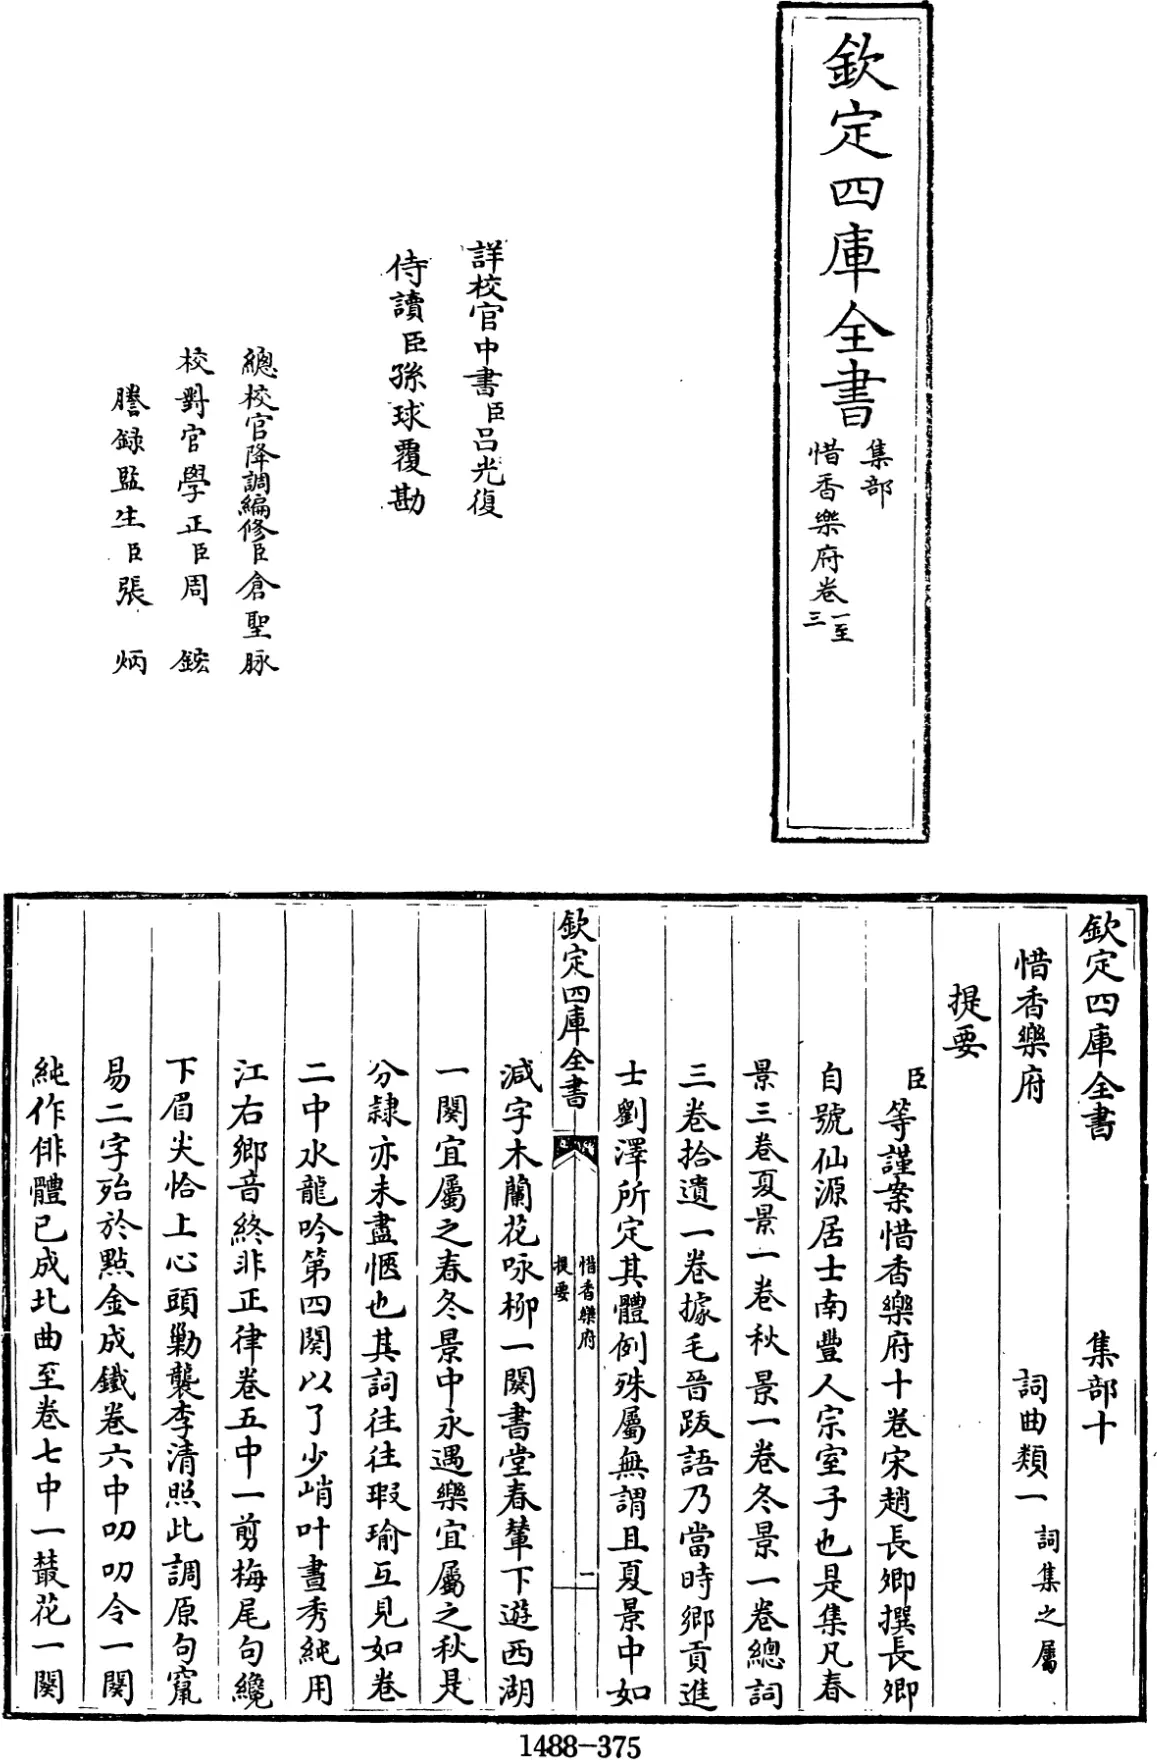 欽定四庫全書
集部
惜香樂府卷一至三
詳校官中書臣呂光復
侍讀臣孫球覆勘
總校官降調編修臣倉聖脉
校對官學正臣周鋐
謄録監生臣張炳
欽定四庫全書 集部十
惜香樂府 詞曲類一 詞集之屬
提要
臣等謹案惜香樂府十卷宋趙長卿撰長卿
自號仙源居士南豐人宗室子也是集凡春
景三卷夏景一卷秋景一卷冬景一卷總詞
三卷拾遺一卷據毛晉跋語乃當時鄉貢進
士劉澤所定其體例殊屬無謂且夏景中如
欽定四庫全書
惜香樂府
提要
二
減字木蘭花咏柳一闋書堂春輦下遊西湖
一闋宜屬之春冬景中永遇樂宜屬之秋是
分隷亦未盡愜也其詞往往瑕瑜互見如卷
二中水龍吟第四闋以了少峭叶晝秀純用
江右鄉音終非正律卷五中一剪梅尾句纔
下眉尖恰上心頭勦襲李清照此調原句竄
易二字殆於點金成鐵卷六中叨叨令一闋
純作俳體已成北曲至卷七中一叢花一闋
1488-375